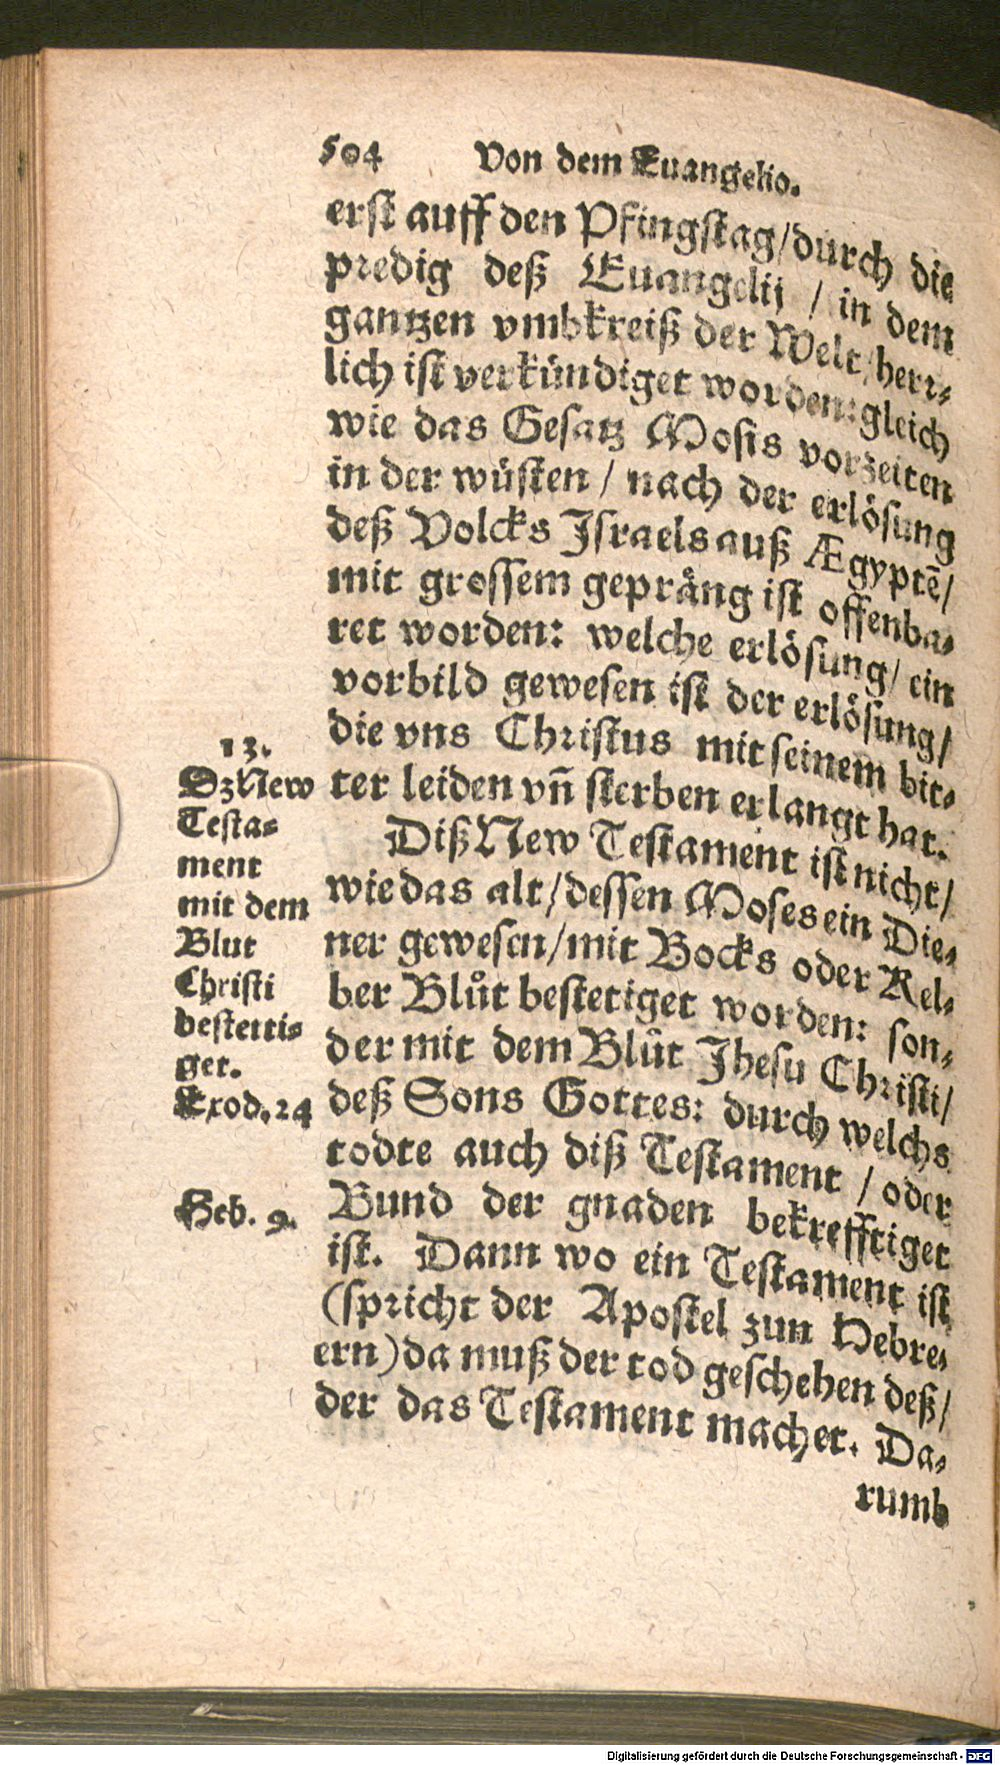 504 Von dem Euangelio.
erst auff den Pfingstag/durch die
predig deß Euangelij / in dem
gantzen vmbkreiß der Welt/herr⸗
lich ist verkündiget worden:gleich
wie das Gesatz Mosis vorzeiten
in der wüsten / nach der erlösung
deß Volcks Israels auß Ægyptē/
mit grossem gepräng ist offenba⸗
ret worden: welche erlösung/ ein
vorbild gewesen ist der erlösung/
die vns Christus mit seinem bit⸗
ter leiden vñ sterben erlangt hat.
Diß New Testament ist nicht/
wie das alt/dessen Moses ein Die⸗
ner gewesen/mit Bocks oder Kel⸗
ber Blůt bestetiget worden: son⸗
der mit dem Blůt Jhesu Christi/
deß Sons Gottes: durch welchs
todte auch diß Testament / oder
Bund der gnaden bekrefftiget
ist. Dann wo ein Testament ist
(spricht der Apostel zun Hebre⸗
ern)da muß der tod geschehen deß/
der das Testament machet. Da⸗
rumb
13.
Dz New
Testa⸗
ment
mit dem
Blut
Christi
bestetti⸗
get.
Exod. 24
Heb. 9.
Digitalisierung gefördert durch die Deutsche Forschungsgemeinschaft - DFG